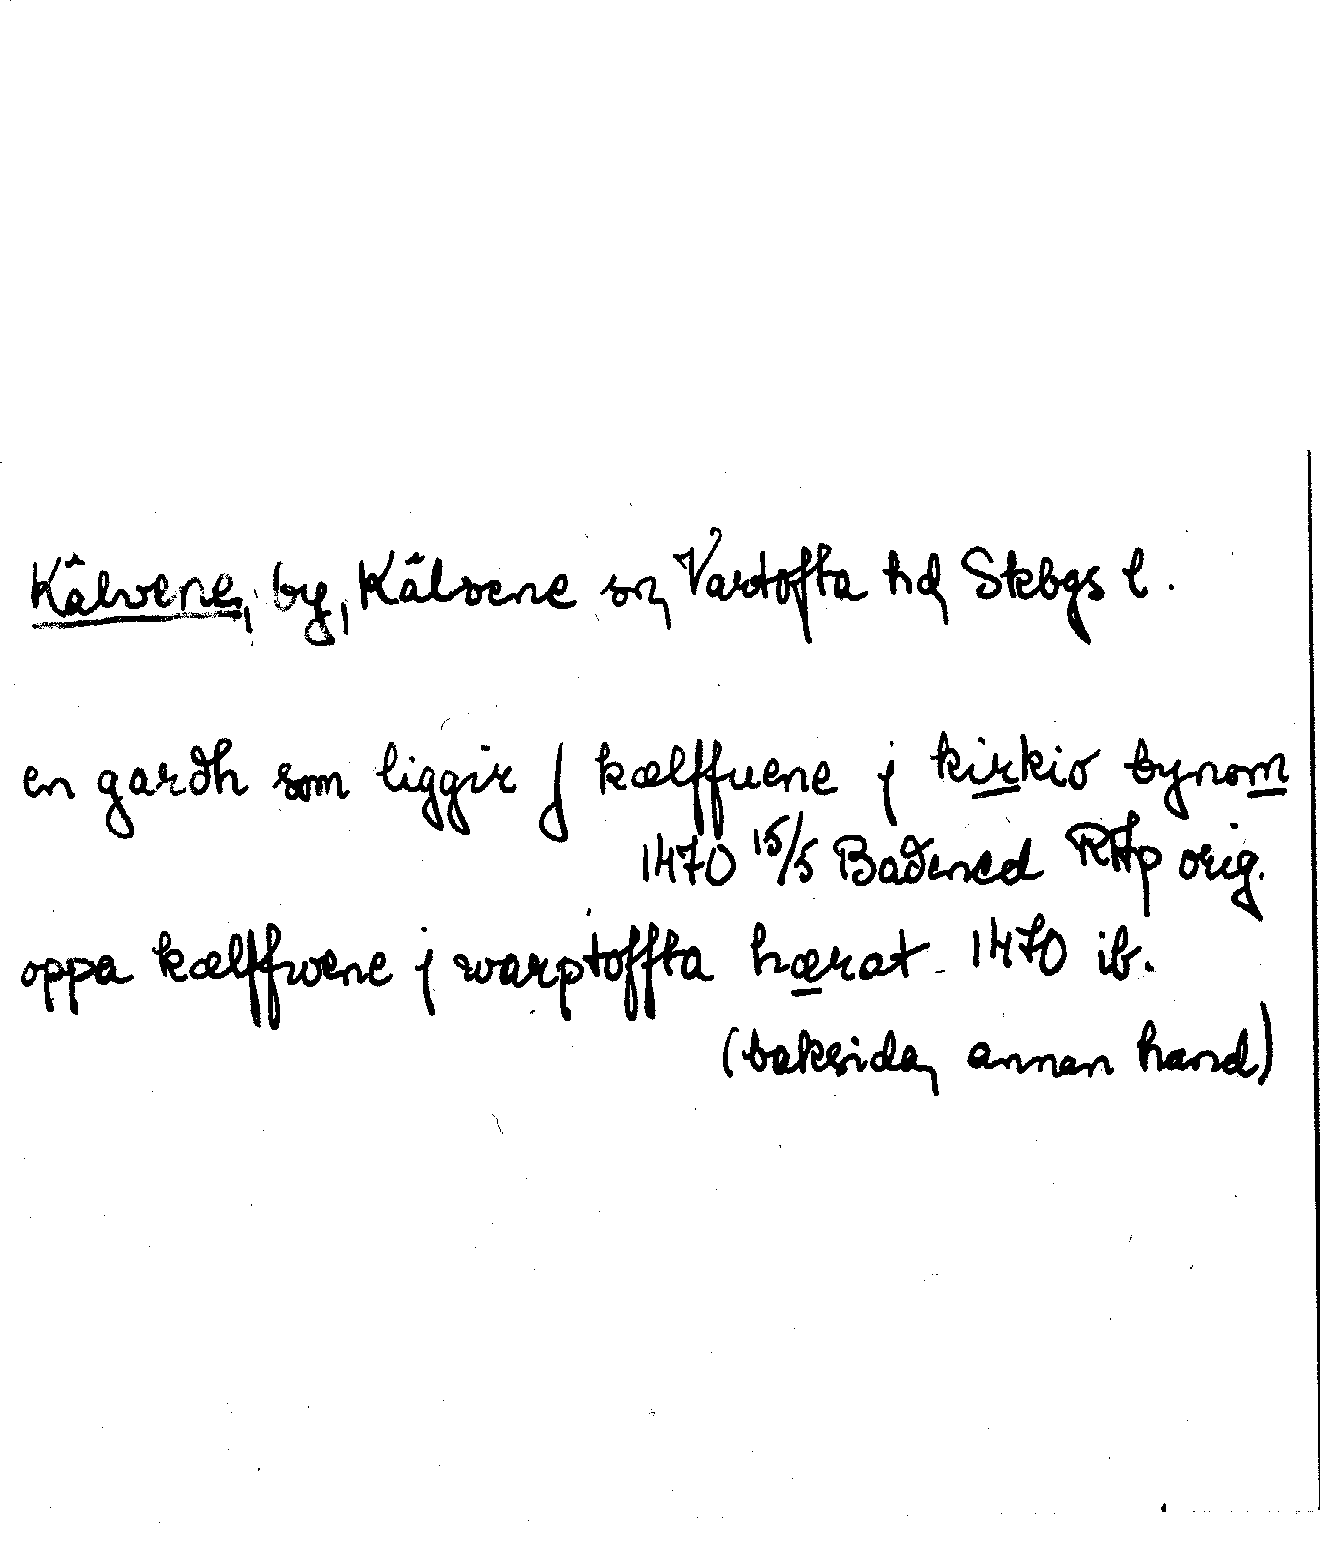 Kälvene, by, Kälvene sn, Vartofta hd, Skbgs l.
en gardh som liggir j kælffuene j kirkio bynom
1470 15/5 Badened RAp orig.
oppa kælffwene j warptoffta hærat 1470 ib.
(baksida, annan hand)